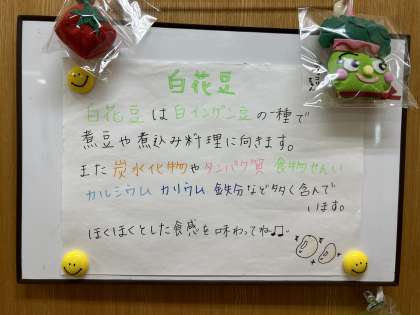 白花豆
白花豆は白インゲン豆の一種で
煮豆や煮込み料理に向きます。
また炭水化物やタンパク質 食物せんい
カルシウム カリウム 鉄分など多く含んで
います。
ほくほくとした食感を味わってね♫